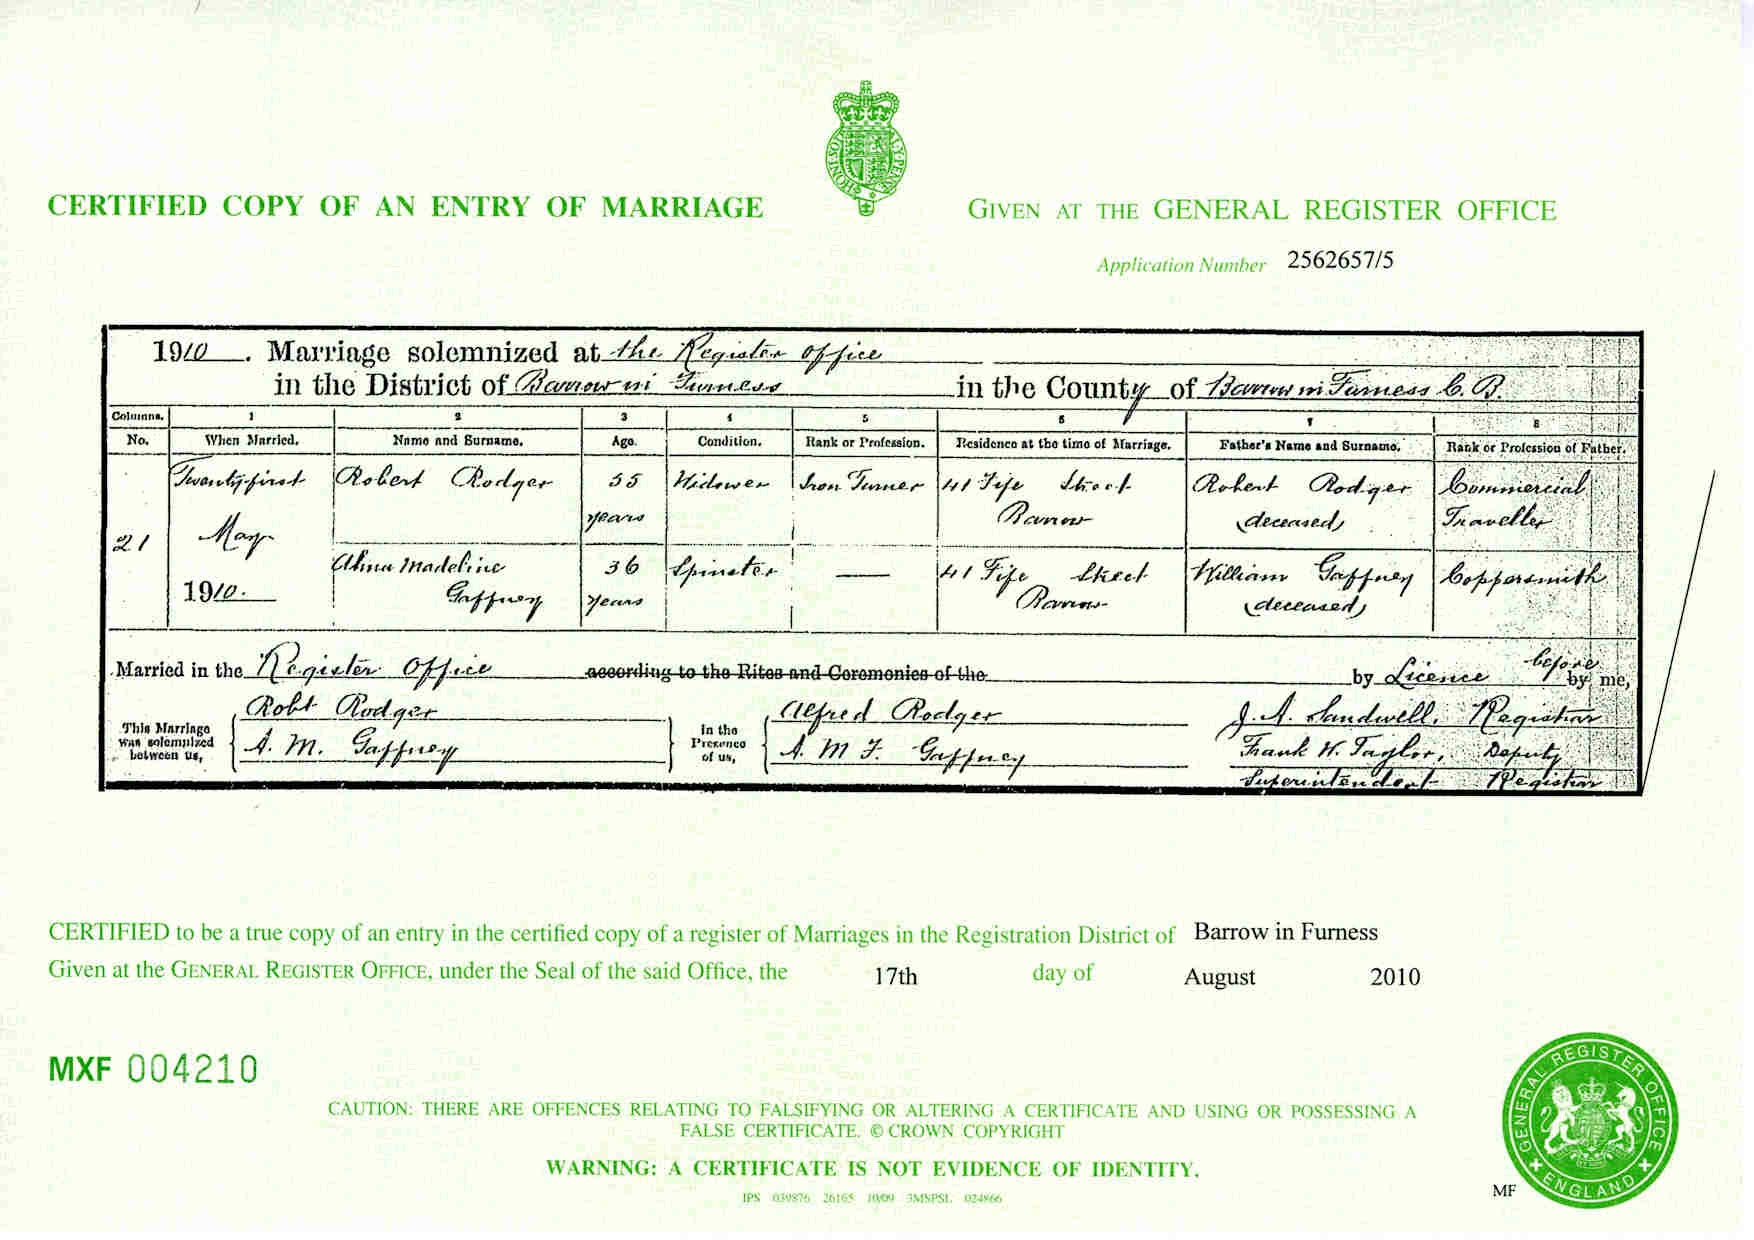 HONI SOIT QUI MAL Y PENSE
CERTIFIED COPY OF AN ENTRY OF MARRIAGE
GIVEN AT THE GENERAL REGISTER OFFICE
Application Number 2562657/5
1910. Marriage solemnized at the Register Office
in the District of Barrow in Furness in the County of Barrow in Furness C.B.
Columns. 1 2 3 4 5 6 7 8
No. When Married. Name and Surname. Age. Condition. Rank or Profession. Residence at the time of Marriage. Father's Name and Surname. Rank or Profession of Father.
21 Twenty-first May 1910.
Robert Rodger 55 years Widower Iron Turner 41 Fife Street Barrow Robert Rodger (deceased) Commercial Traveller
Madeline Gaffney 36 years Spinster — 41 Fife Street Barrow William Gaffney (deceased) Coppersmith
Married in the Register Office according to the Rites and Ceremonies of the by Licence before by me,
This Marriage was solemnized between us,
Robt Rodger
A. M. Gaffney
In the Presence of us,
Alfred Rodger
A. M. F. Gaffney
J. A. Sandwell, Registrar
Frank H. Taylor, Deputy
Superintendent Registrar
CERTIFIED to be a true copy of an entry in the certified copy of a register of Marriages in the Registration District of Barrow in Furness
Given at the GENERAL REGISTER OFFICE, under the Seal of the said Office, the 17th day of August 2010
MXF 004210
CAUTION: THERE ARE OFFENCES RELATING TO FALSIFYING OR ALTERING A CERTIFICATE AND USING OR POSSESSING A
FALSE CERTIFICATE. © CROWN COPYRIGHT
WARNING: A CERTIFICATE IS NOT EVIDENCE OF IDENTITY.
IPS 039876 26165 10/09 3MSPSL 024866
MF
GENERAL REGISTER OFFICE
ENGLAND